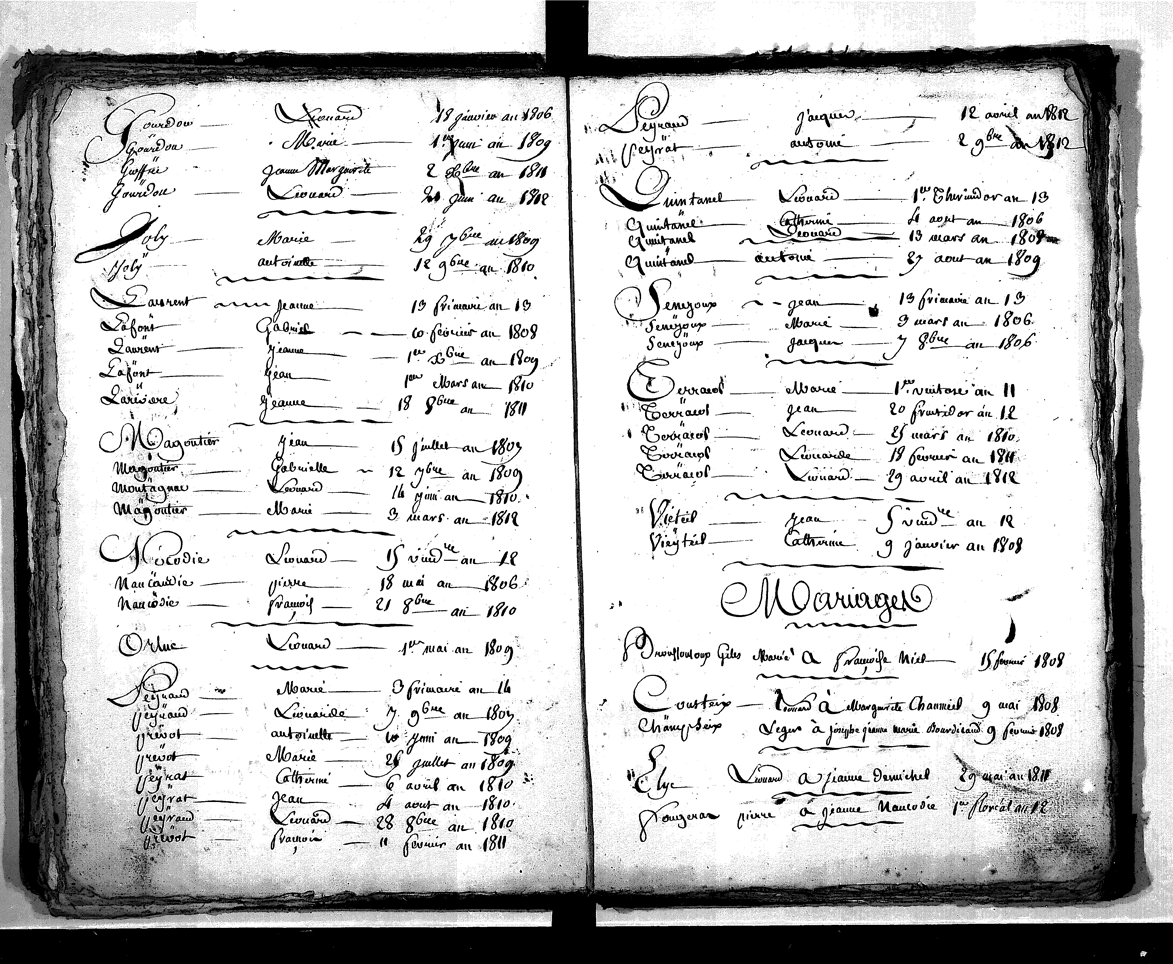 Gourdon Léonard 18 janvier an 1806
Gourdon Marie 1er juin an 1809
Jeanne Marguerite 2 Xbre an 1811
Gourdon Léonard juin an 1812
Joly Marie 29 7bre an 1809
Joly antoinette 12 9bre an 1810
Laurent Jeanne 13 frimaire an 13
Lafont Gabriel 10 février an 1808
Laurent Jeanne 1er Xbre an 1809
Lafont Jean 1er Mars an 1810
Larivière Jeanne 18 8bre an 1811
Magoutier Jean 15 juillet an 1807
Magoutier Gabrielle 12 7bre an 1809
Montagnac Léonard 14 juin an 1810
Magoutier Marie 3 mars an 1812
Nicodie Léonard 15 vendre an 12
Naucaudie pierre 18 mai an 1806
Naucodie françois 21 8bre an 1810
Orluc Léonard 1er mai an 1809
Peyraud Marie 3 frimaire an 14
peyraud Léonarde 7 9bre an 1807
prévot antoinette 10 juin an 1809
prévot Marie 25 juillet an 1809
peyrat Catherine 6 avril an 1810
peyrat Jean 4 aout an 1810
peyraud Léonard 28 8bre an 1810
prévot françois 11 février an 1811
Peyraud jacques 12 avril an 1812
Peyrat antoine 2 9bre an 1812
Quintanel Léonard 1er Thermidor an 13
Quintanel Catherine 4 aout an 1806
Quintanel Léonard 13 mars an 1808
Quintanel antoine 27 aout an 1809
Senejoux jean 13 frimaire an 13
Senejoux Marie 3 mars an 1806
Senejoux jacques 7 8bre an 1806
Terracol Marie 1er ventose an 11
Terracol jean 20 frutidor an 12
Terracol Léonard 25 mars an 1810
Terracol Léonarde 18 février an 1811
Terracol Léonard 29 avril an 1812
Vieteil jean 5 vendre an 12
Vieyteil Catherine 9 janvier an 1808
Mariages
Marié à françoise Niel 15 février 1808
Cousteix Léonard à Marguerite Chanmiel 9 mai 1808
Champseix Leger à josephe jeanne marie Bourdicaud 9 février 1808
Elye Léonard à jeanne Demichel 29 mai an 1811
Fougeras pierre à jeanne Naucodie 1er floréal an 12